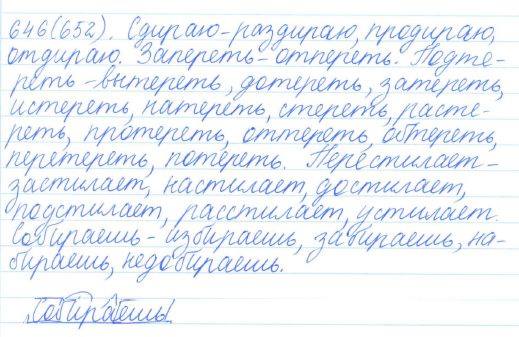 646(652). Сдираю-раздираю, продираю,
отдираю. Запереть-отпереть. Подте-
реть-вытереть, дотереть, затереть,
истереть, натереть, стереть, расте-
реть, протереть, оттереть, обтереть,
перетереть, потереть. Перестилает-
застилает, настилает, достилает,
подстилает, расстилает, устилает.
Собираешь-избираешь, забираешь, на-
бираешь, недобираешь.
Собираешь